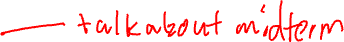 talk about midterm